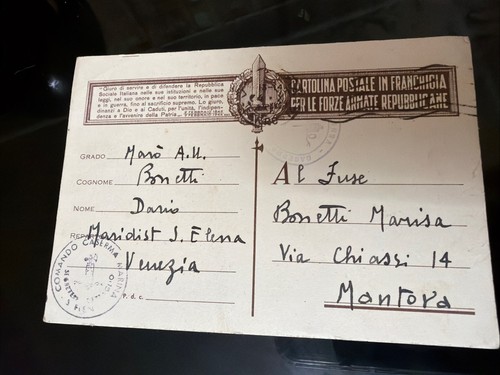 "Giuro di servire e di difendere la Repubblica
Sociale Italiana nelle sue istituzioni e nelle sue
leggi, nel suo onore e nel suo territorio, in pace
e in guerra, fino al sacrificio supremo. Lo giuro,
dinanzi a Dio e ai Caduti, per l'unità, l'indipen-
denza e l'avvenire della Patria.
CARTOLINA POSTALE IN FRANCHIGIA
PER LE FORZE ARMATE REPUBBLICANE
GRADO Marò A.U.
COGNOME Bonetti
NOME Dario
Maridist S. Elena
Venezia
P. d. c.
COMANDO CASERMA MARINA
Al Fuse
Bonetti Marisa
Via Chiassi 14
Mantova